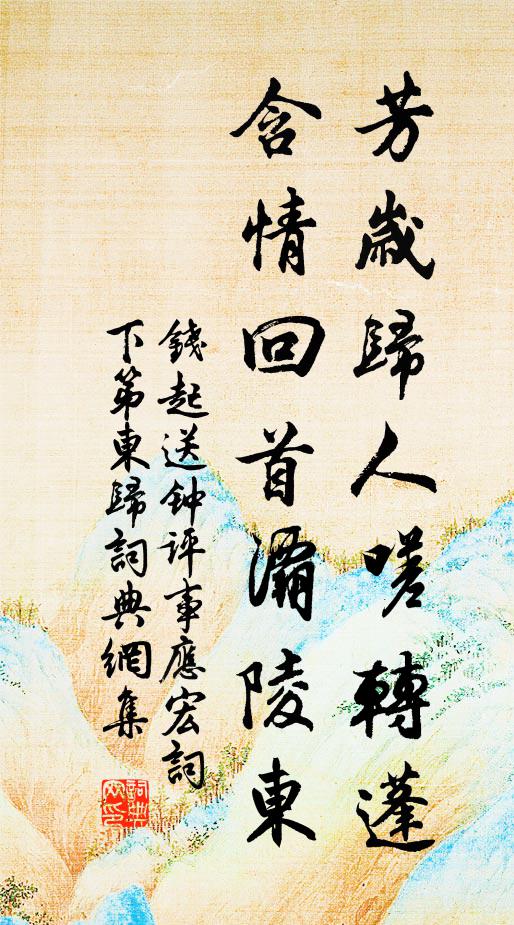 芳歲歸人嗟轉蓬
含情回首灞陵東
錢起送钟評事應宏詞
下第東歸詞典網集